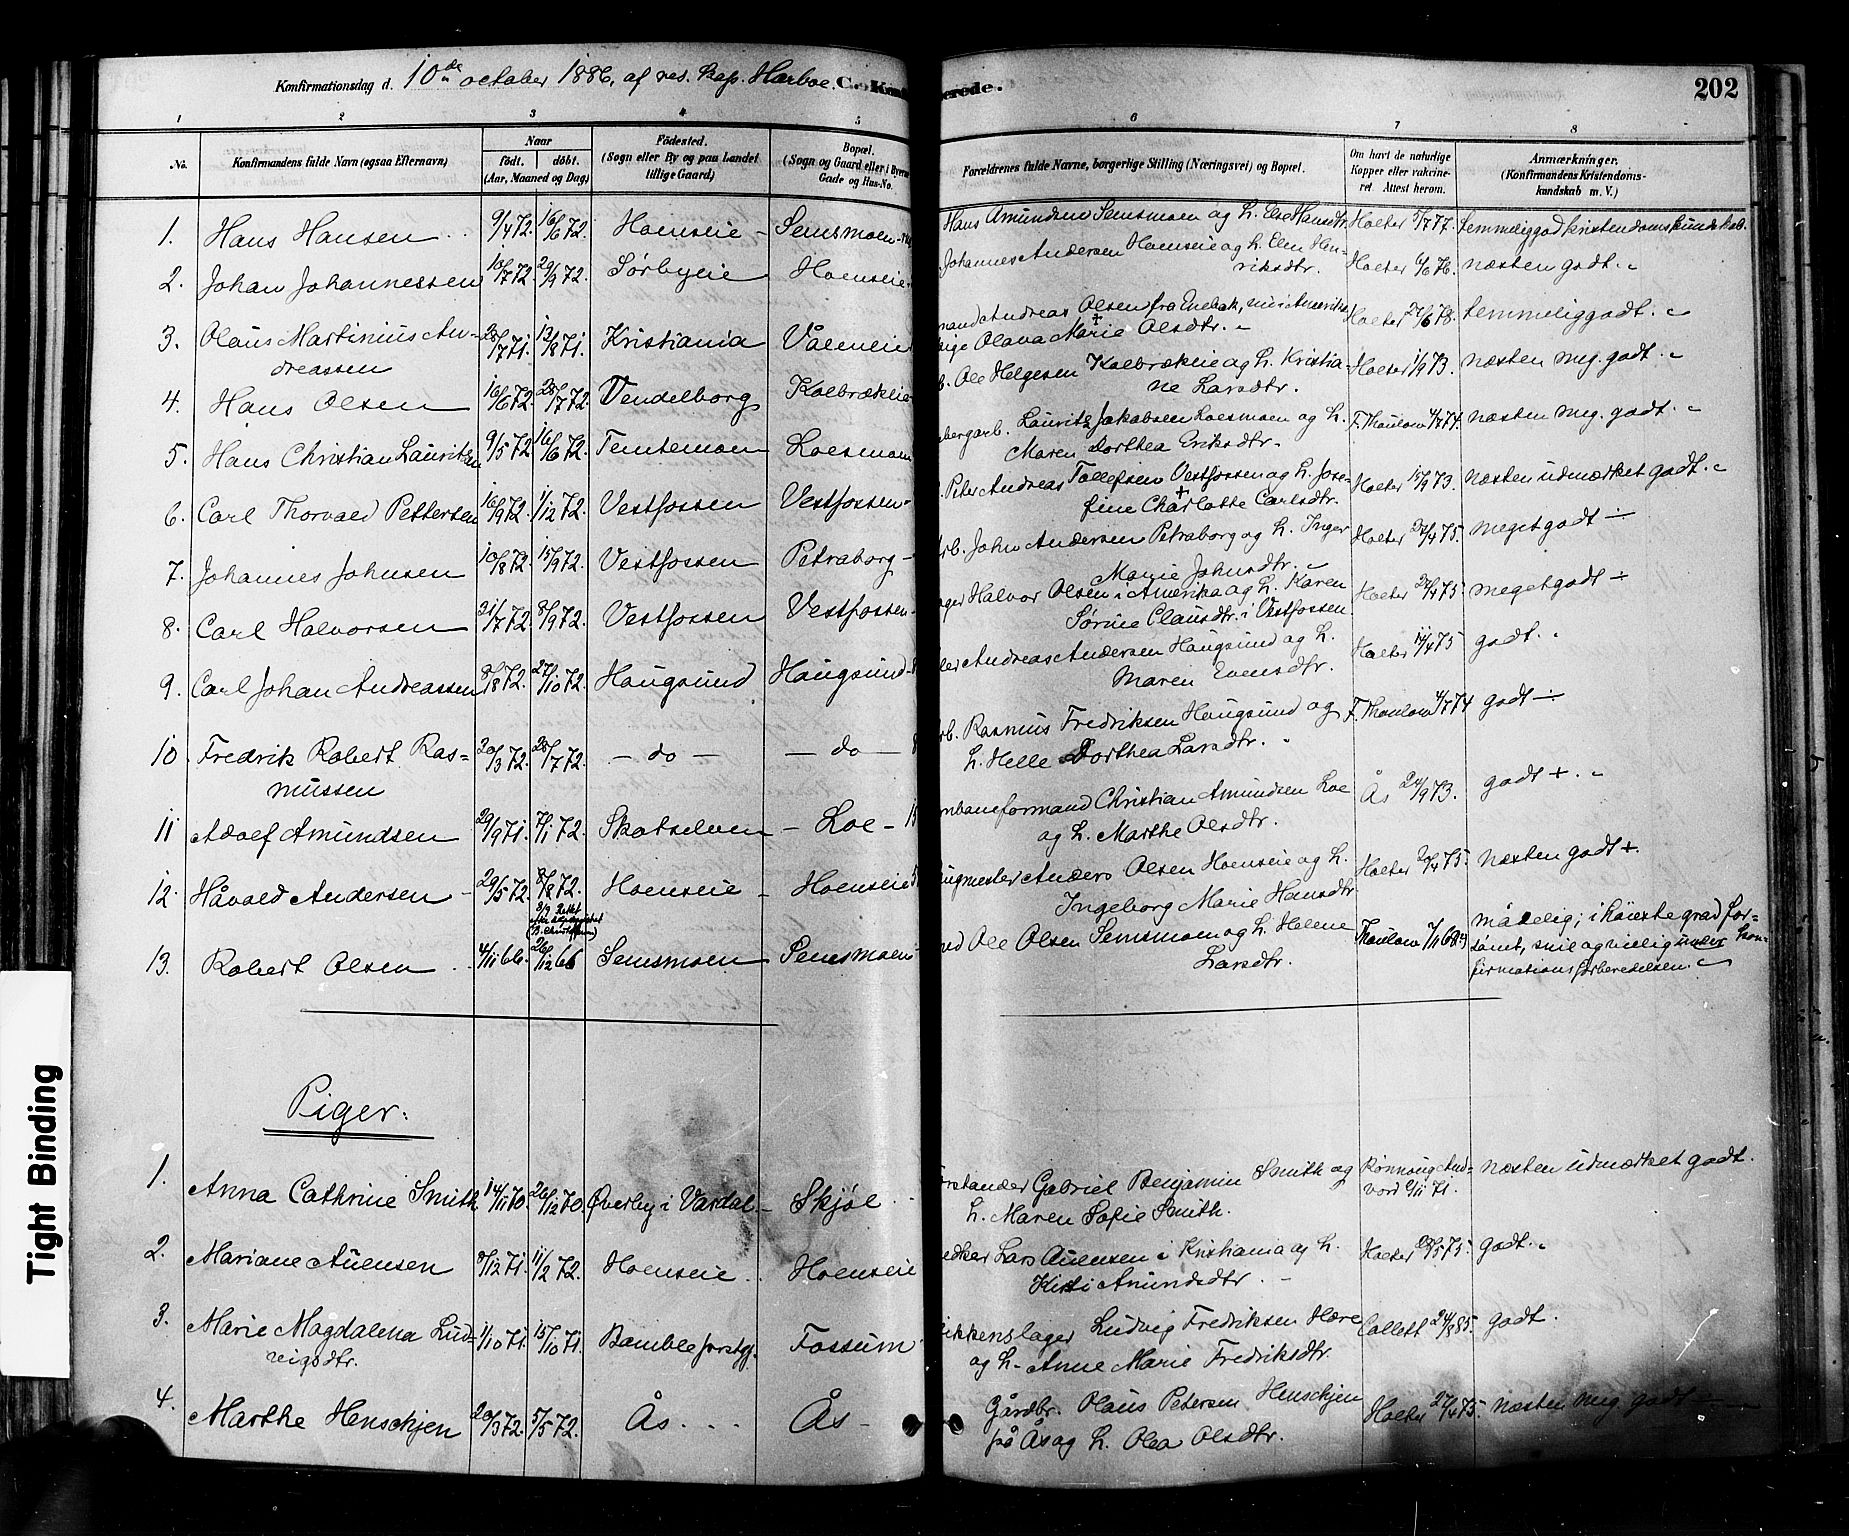 Konfirmationsdag d. 10de october 1886, af res. Kap. Harboe. C. Konf
erede.
202
1 2 3 4 5 6 7 8
No. Konfirmandens fulde Navn (ogsaa Efternavn) Naar födt. döbt. (Aar, Maaned og Dag) Födested. (Sogn eller By og paa Landet tillige Gaard) Bopæl. (Sogn og Gaard eller i Byerne Gade og Hus-No.
Forældrenes fulde Navne, borgerlige Stilling (Næringsvei) og Bopæl. Om havt de naturlige Kopper eller vakcineret. Attest herom. Anmærkninger. (Konfirmandens Kristendomskundskab m. V.)
1. Hans Hansen 9/4 72. 16/6 72. Hoenseie Semsmoen Hans Amundsen Semsmoen og h. Else Hansdtr. Holter 5/7 77. temmelig god kristendomskundskab.
2. Johan Johannessen 18/7 72 29/9 72. Sørbyeie Hoenseie Johannes Andersen Hoenseie og h. Elen Hen-
riksdtr. Holter 6/6 76. næsten godt.
3. Olaus Martinius An-
dreassen 28/7 71. 13/8 71. Kristiania Våeneie mand Andreas Olsen fra Enebak, nu i Amerika
ige Olava Marie Olsdtr. Holter 24/6 78. temmelig godt.
4. Hans Olsen 16/6 72 28/7 72. Vendelborg Kolbrækeie b. Ole Helgesen Kolbrækeie og h. Kristia-
ne Larsdtr. Holter 1/9 73. næsten meg. godt.
5. Hans Christian Lauritsen 9/5 72 16/6 72. Temtemoen Loesmoen bergarb. Lauritz Jakobsen Loesmoen og h.
Maren Dorthea Eriksdtr. F. Thaulow 4/7 74. næsten meg. godt.
6. Carl Thorvald Pettersen 16/9 72. 1/12 72. Vestfossen Vestfossen Peter Andreas Tollefsen Vestfossen og h. Jose-
fine Charlotte Carlsdtr. Holter 15/9 73. næsten udmærket godt.
7. Johannes Johnsen 10/8 72. 15/9 72. Vestfossen Petraborg rb. John Andersen Petraborg og h. Inger
Marie Johnsdtr. Holter 27/4 75. meget godt
8. Carl Halvorsen 21/7 72. 8/9 72. Vestfossen Vestfossen ager Halvor Olsen i Amerika og h. Karen
Sørine Clausdtr. i Vestfossen Holter 27/4 75 meget godt +
9. Carl Johan Andreassen 8/8 72. 27/10 72. Haugsund Haugsund ler Andreas Andersen Haugsund og h.
Maren Evensdtr. Holter 14/4 75 godt.
10. Fredrik Robert Ras-
mussen 20/3 72. 28/7 72. – do – – do – rb. Rasmus Fredriksen Haugsund og
h. Helle Dorthea Larsdtr. F. Thaulow 4/7 74 godt
11 Adolf Amundsen 29/9 71. 7/1 72. Skotselven Loe nbaneformand Christian Amundsen Loe
og h. Marthe Olsdtr. Ås 24/9 73. godt +.
12. Håvald Andersen 29/5 72. 8/8 72. Hoenseie Hoenseie ugmester Anders Olsen Hoenseie og h.
Ingeborg Marie Hansdtr. Holter 20/4 75. næsten godt +.
13. Robert Olsen 4/11 66. 26/12 66 Semsmoen Semsmoen nd Ole Olsen Semsmoen og h. Helene
Larsdtr. Thaulow 7/11 68 mådelig; i høieste grad for-
sømt, snil og villig under kon-
firmationsforberedelsen.
Piger.
1. Anna Cathrine Smith 14/11 70. 26/12 70. Øverby i Vardal Skjøl rstander Gabriel Benjamin Smith og
h. Maren Sofie Smith. Rønnaug And-
vord 6/11 71. næsten udmærket godt.
2. Mariane Auensen 8/12 71. 11/2 72. Hoenseie Hoenseie edker Lars Auensen i Kristiania og h.
Kirsti Amundsdtr. Holter 28/5 75. godt.
3. Marie Magdalena Lud-
vigsdtr. 1/10 71. 15/10 71. Bamble prstgj. Fossum ikkenslager Ludvig Fredriksen Hære
og h. Anne Marie Fredriksdtr. Collett 24/9 85. godt.
4. Marthe Henschjen 20/3 72. 5/5 72. Ås Ås Gårdbr. Olaus Petersen Henschjen
på Ås og h. Olea Olsdtr. Holter 27/4 75. næsten meg. godt
Tight Binding